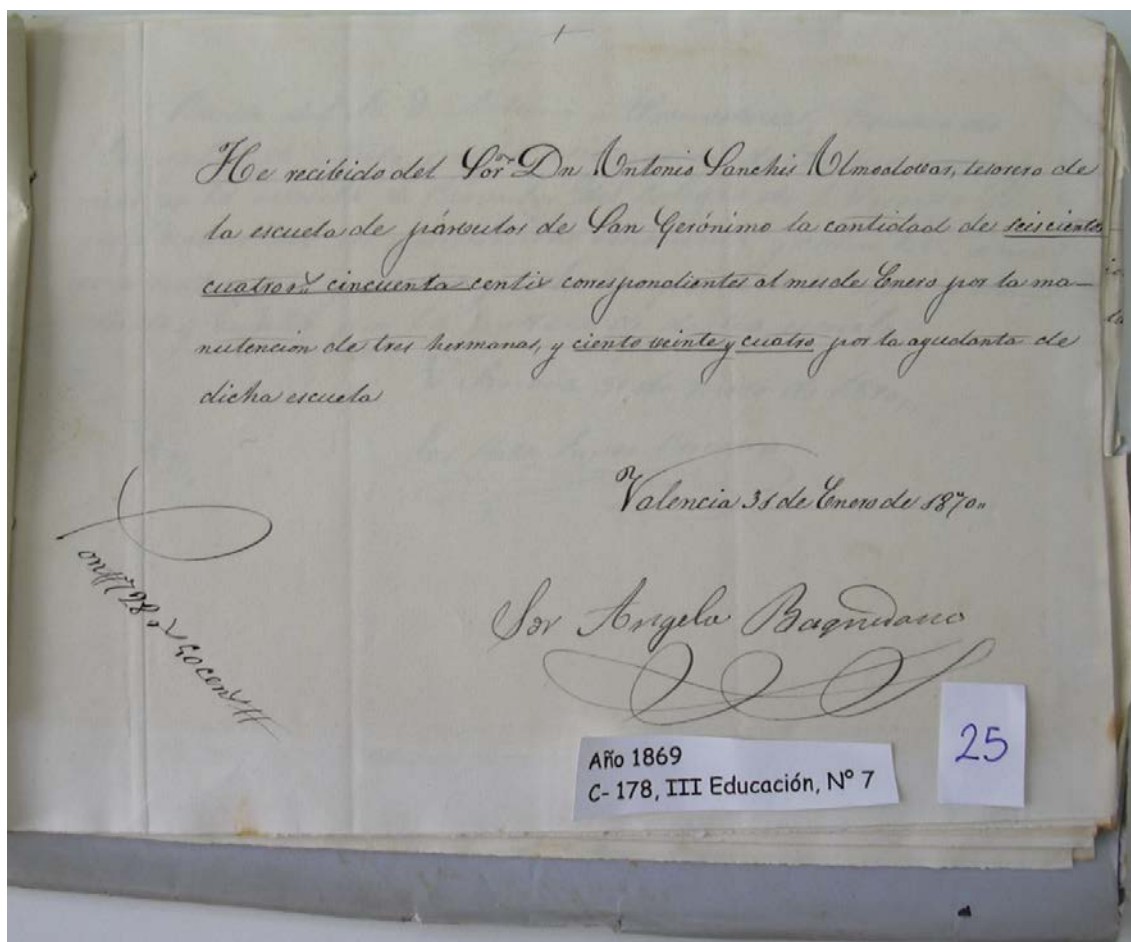 He recibido del Sor Dn Antonio Sanchis Almodovar, tesorero de
la escuela de párvulos de San Gerónimo la cantidad de seiscientos
cuatro rs cincuenta centis correspondientes al mes de Enero por la ma—
nutencion de tres hermanas, y ciento veinte y cuatro por la ayudanta de
dicha escuela
Valencia 31 de Enero de 1870
Sor Angela Baquedano
Son # 728 rs 50 cens #
Año 1869
C- 178, III Educación, Nº 7
25